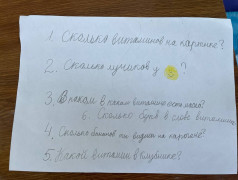 1. Сколько витаминов на картинке?
2. Сколько лучиков у ?
3. В каком витамине есть
6. Сколько букв в слове витамины
4. Сколько вы видите на картинке?
5. Какой витамин в клубнике?